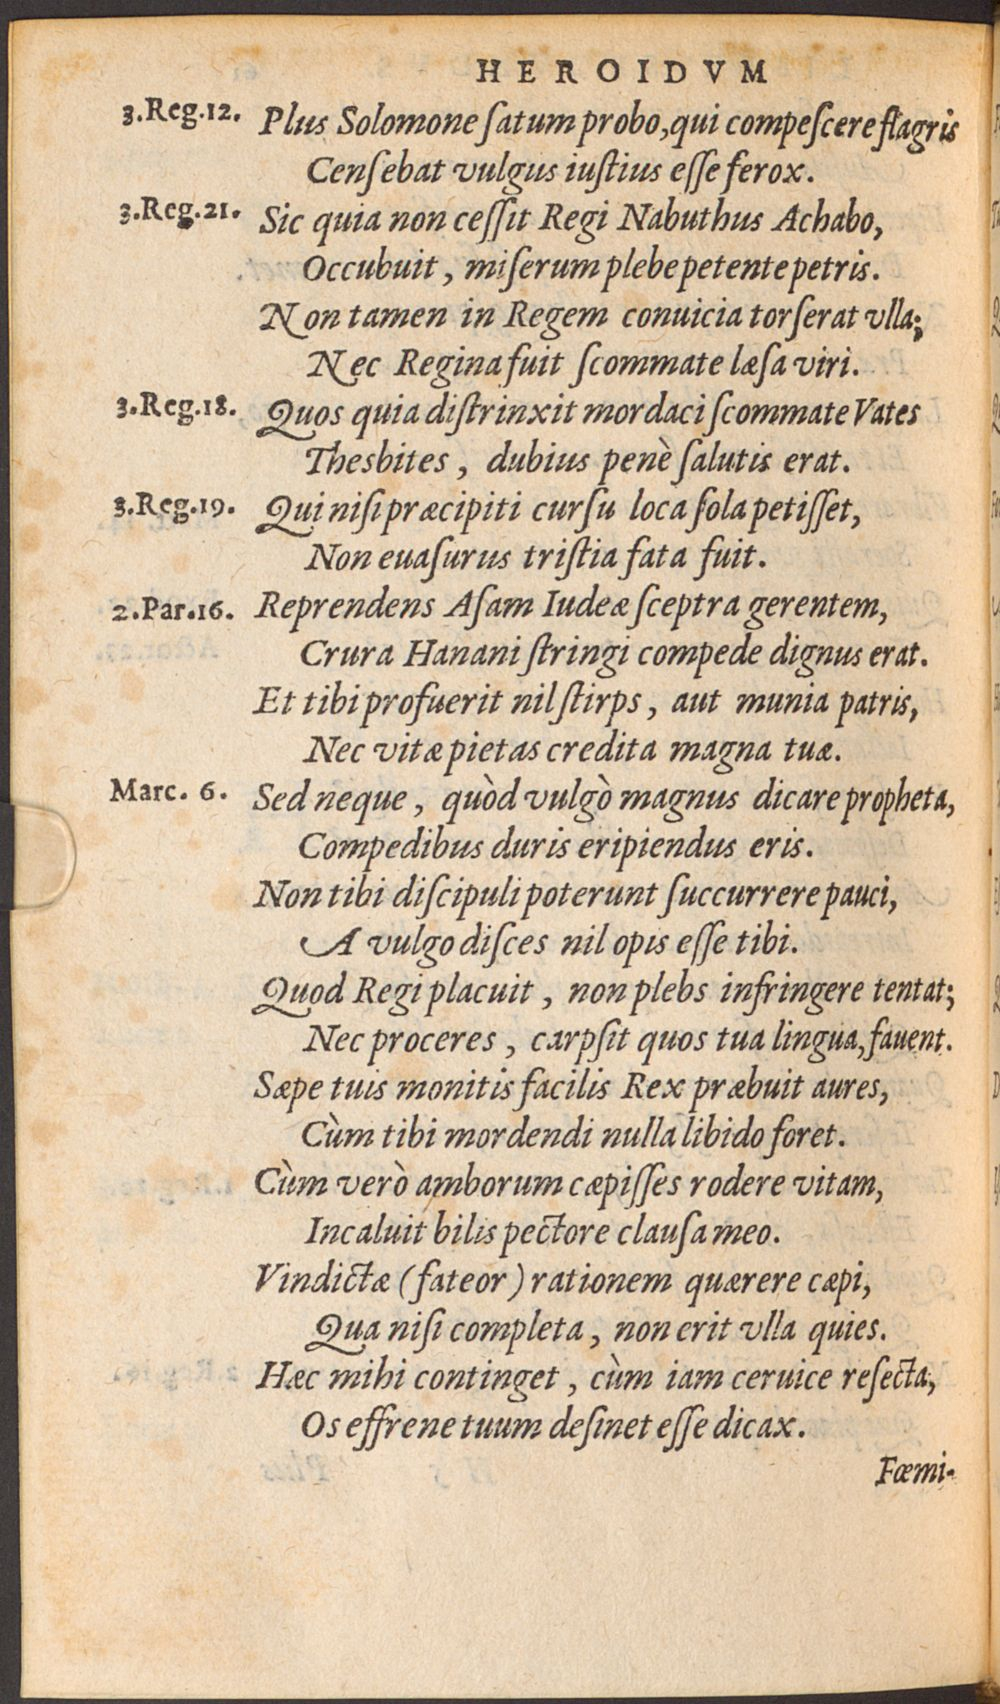 HEROIDVM
3.Reg.12. Plus Solomone ſatum probo, qui compeſcere flagris
Cenſebat vulgus iuſtius eſſe ferox.
3.Reg.21. Sic quia non ceſſit Regi Nabuthus Achabo,
Occubuit, miſerum plebe petente petris.
Non tamen in Regem conuicia torſerat vlla;
Nec Regina fuit ſcommate læſa viri.
3.Reg.18. Quos quia diſtrinxit mordaci ſcommate Vates
Thesbites, dubius penè ſalutis erat.
3.Reg.19. Qui niſi præcipiti curſu loca ſola petiſſet,
Non euaſurus triſtia fata fuit.
2.Par.16. Reprendens Aſam Iudeæ ſceptra gerentem,
Crura Hanani ſtringi compede dignus erat.
Et tibi profuerit nil ſtirps, aut munia patris,
Nec vitæ pietas credita magna tuæ.
Marc. 6. Sed neque, quòd vulgò magnus dicare propheta,
Compedibus duris eripiendus eris.
Non tibi diſcipuli poterunt ſuccurrere pauci,
A vulgo diſces nil opis eſſe tibi.
Quod Regi placuit, non plebs infringere tentat;
Nec proceres, carpſit quos tua lingua, fauent.
Sæpe tuis monitis facilis Rex præbuit aures,
Cùm tibi mordendi nulla libido foret.
Cùm verò amborum cæpiſſes rodere vitam,
Incaluit bilis pectore clauſa meo.
Vindictæ (fateor) rationem quærere cæpi,
Qua niſi completa, non erit vlla quies.
Hæc mihi continget, cùm iam ceruice reſecta,
Os effrene tuum deſinet eſſe dicax.
Fœmi-